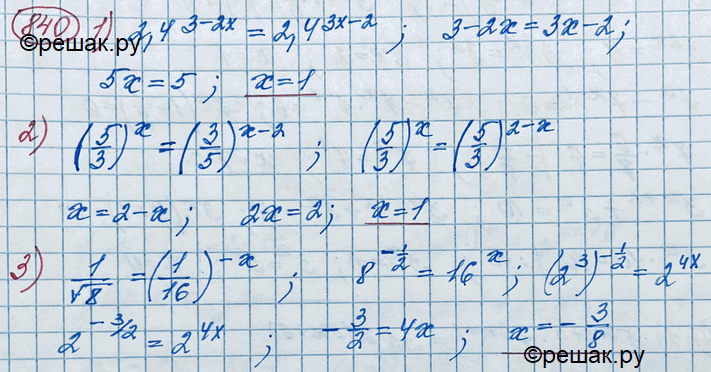 840 1) 2,4^{3-2x} = 2,4^{3x-2} ; 3-2x = 3x-2 ;
©решак.ру
5x = 5 ; x = 1
2) (5/3)^x = (3/5)^{x-2} ; (5/3)^x = (5/3)^{2-x}
x = 2-x ; 2x = 2 ; x = 1
3) 1/√8 = (1/16)^{-x} ; 8^{-1/2} = 16^x ; (2^3)^{-1/2} = 2^{4x}
2^{-3/2} = 2^{4x} ; -3/2 = 4x ; x = -3/8
©решак.ру